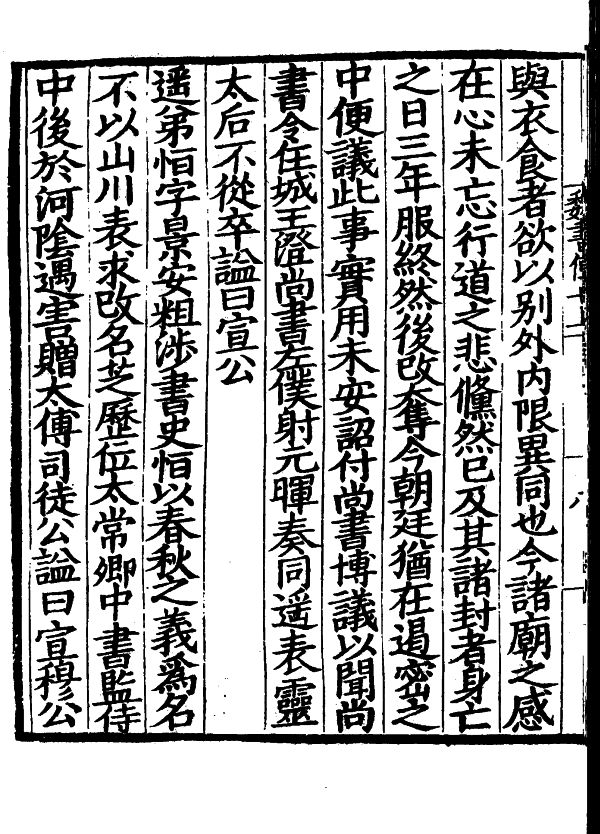 與衣食者欲以别外内限異同也今諸廟之感
在心未忘行道之悲儵然已及其諸封者身亡
之日三年服終然後改奪今朝廷猶在遏密之
中便議此事實用未安詔付尚書博議以聞尚
書令任城王澄尚書左僕射元暉奏同遥表靈
太后不從卒謚曰宣公
遥弟恒字景安粗涉書史恒以春秋之義爲名
不以山川表求改名芝歷位太常卿中書監侍
中後於河隂遇害贈太傅司徒公謚曰宣穆公